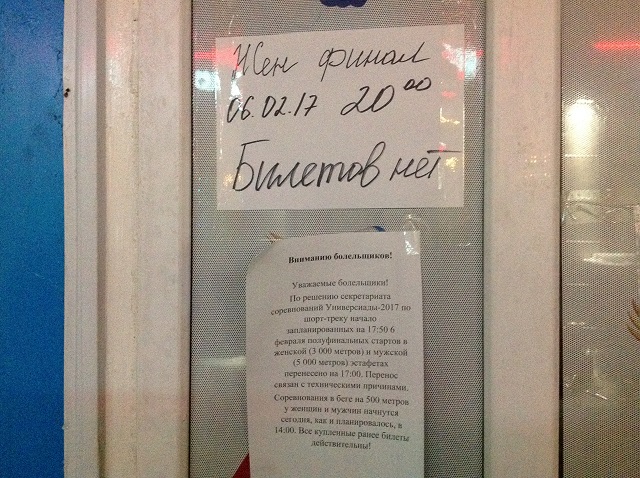 Жен финал
06.02.17 20 00
Билетов нет
Вниманию болельщиков!
Уважаемые болельщики!
По решению секретариата
соревнований Универсиады-2017 по
шорт-треку начало
запланированных на 17:50 6
февраля полуфинальных стартов в
женской (3 000 метров) и мужской
(5 000 метров) эстафетах
перенесено на 17:00. Перенос
связан с техническими причинами.
Соревнования в беге на 500 метров
у женщин и мужчин начнутся
сегодня, как и планировалось, в
14:00. Все купленные ранее билеты
действительны!